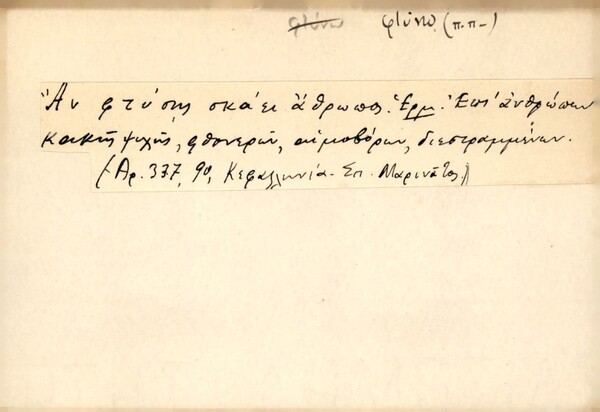 φτύνω φτύνω (π.π-)
Ἂν φτύσῃς σκάει ἄθρωπος. Ἑρμ. Ἐπὶ ἀνθρώπων
κακῆς ψυχῆς, φθονερῶν, αἱμοβόρων, διεστραμμένων.
(Ἀρ. 337, 90, Κεφαλληνία - Σπ. Μαρινᾶτος)